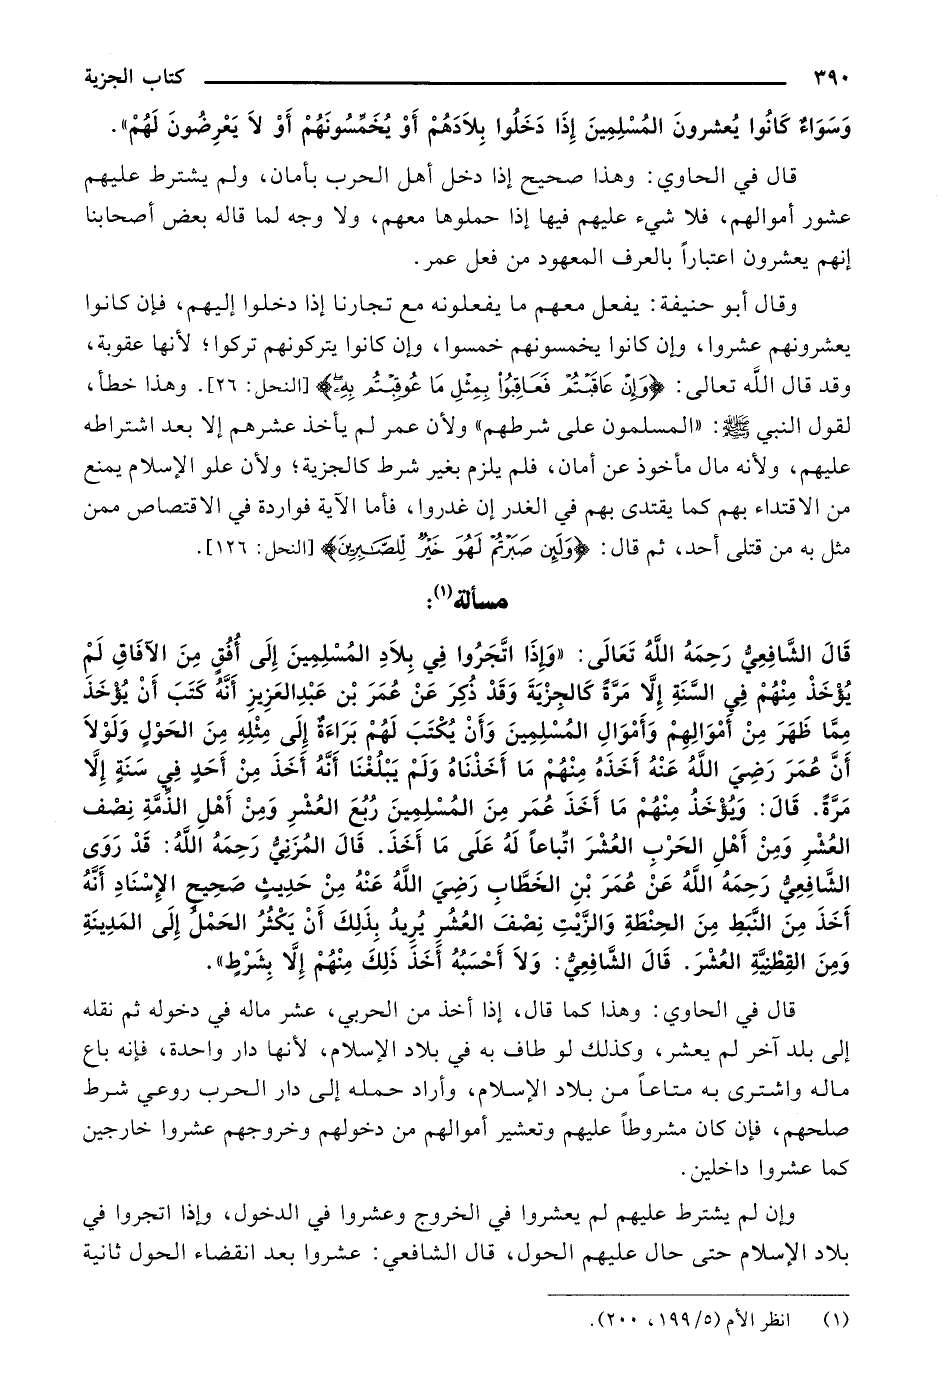 ٣٩٠ كتاب الجزية
وَسَوَاءٌ كَانُوا يُعشرونَ المُسْلِمِينَ إِذَا دَخَلُوا بِلاَدَهُمْ أَوْ يُخَمِّسُونَهُمْ أَوْ لاَ يَعْرِضُونَ لَهُمْ».
قال في الحاوي: وهذا صحيح إذا دخل أهل الحرب بأمان، ولم يشترط عليهم
عشور أموالهم، فلا شيء عليهم فيها إذا حملوها معهم، ولا وجه لما قاله بعض أصحابنا
إنهم يعشرون اعتباراً بالعرف المعهود من فعل عمر.
وقال أبو حنيفة: يفعل معهم ما يفعلونه مع تجارنا إذا دخلوا إليهم، فإن كانوا
يعشرونهم عشروا، وإن كانوا يخمسونهم خمسوا، وإن كانوا يتركونهم تركوا؛ لأنها عقوبة،
وقد قال اللَّه تعالى: ﴿وَإِنْ عَاقَبْتُمْ فَعَاقِبُوا بِمِثْلِ مَا عُوقِبْتُم بِهِ﴾ [النحل: ٢٦]. وهذا خطأ،
لقول النبي ﷺ: «المسلمون على شرطهم» ولأن عمر لم يأخذ عشرهم إلا بعد اشتراطه
عليهم، ولأنه مال مأخوذ عن أمان، فلم يلزم بغير شرط كالجزية؛ ولأن علو الإسلام يمنع
من الاقتداء بهم كما يقتدى بهم في الغدر إن غدروا، فأما الآية فواردة في الاقتصاص ممن
مثل به من قتلى أحد، ثم قال: ﴿وَلَئِن صَبَرْتُمْ لَهُوَ خَيْرٌ لِّلصَّابِرِينَ﴾ [النحل: ١٢٦].
مسألة(١):
قَالَ الشَّافِعِيُّ رَحِمَهُ اللَّهُ تَعَالَى: «وَإِذَا اتَّجَرُوا فِي بِلاَدِ المُسْلِمِينَ إِلَى أُفُقٍ مِنَ الآفَاقِ لَمْ
يُؤْخَذْ مِنْهُمْ فِي السَّنَةِ إِلَّا مَرَّةً كَالجِزْيَة وَقَدْ ذُكِرَ عَنْ عُمَرَ بْن عَبْدِالعَزِيزِ أَنَّهُ كَتَبَ أَنْ يُؤْخَذَ
مِمَّا ظَهَرَ مِنْ أَمْوَالِهِمْ وَأَمْوَالِ المُسْلِمِينَ وَأَنْ يُكْتَبَ لَهُمْ بَرَاءَةٌ إِلَى مِثْلِهِ مِنَ الحَوْلِ وَلَوْلاَ
أَنَّ عُمَرَ رَضِيَ اللَّهُ عَنْهُ أَخَذَهُ مِنْهُمْ مَا أَخَذْنَاهُ وَلَمْ يَبْلُغْنَا أَنَّهُ أَخَذَ مِنْ أَحَدٍ فِي سَنَةٍ إِلَّا
مَرَّةً. قَالَ: وَيُؤْخَذُ مِنْهُمْ مَا أَخَذَ عُمَر مِنَ المُسْلِمِينَ رُبُعَ العُشْرِ وَمِنْ أَهْلِ الذِّمَّةِ نِصْف
العُشْرِ وَمِنْ أَهْلِ الحَرْبِ العُشْرَ اتِّبَاعاً لَهُ عَلَى مَا أَخَذَ. قَالَ المُزَنِيُّ رَحِمَهُ اللَّهُ: قَدْ رَوَى
الشَّافِعِيُّ رَحِمَهُ اللَّهُ عَنْ عُمَرَ بْنِ الخَطَّابِ رَضِيَ اللَّهُ عَنْهُ مِنْ حَدِيثٍ صَحِيحِ الإِسْنَادِ أَنَّهُ
أَخَذَ مِنَ النَّبَطِ مِنَ الحِنْطَةِ وَالزَّيْتِ نِصْفَ العُشْرِ يُرِيدُ بِذَلِكَ أَنْ يَكْثُرُ الحَمْلُ إِلَى المَدِينَةِ
وَمِنَ القِطْنِيَّةِ العُشْرَ. قَالَ الشَّافِعِيُّ: وَلاَ أَحْسَبُهُ أَخَذَ ذَلِكَ مِنْهُمْ إِلَّا بِشَرْطٍ».
قال في الحاوي: وهذا كما قال، إذا أخذ من الحربي، عشر ماله في دخوله ثم نقله
إلى بلد آخر لم يعشر، وكذلك لو طاف به في بلاد الإسلام، لأنها دار واحدة، فإنه باع
ماله واشترى به متاعاً من بلاد الإسلام، وأراد حمله إلى دار الحرب روعي شرط
صلحهم، فإن كان مشروطاً عليهم وتعشير أموالهم من دخولهم وخروجهم عشروا خارجين
كما عشروا داخلين.
وإن لم يشترط عليهم لم يعشروا في الخروج وعشروا في الدخول، وإذا اتجروا في
بلاد الإسلام حتى حال عليهم الحول، قال الشافعي: عشروا بعد انقضاء الحول ثانية
(١) انظر الأم (١٩٩/٥، ٢٠٠).